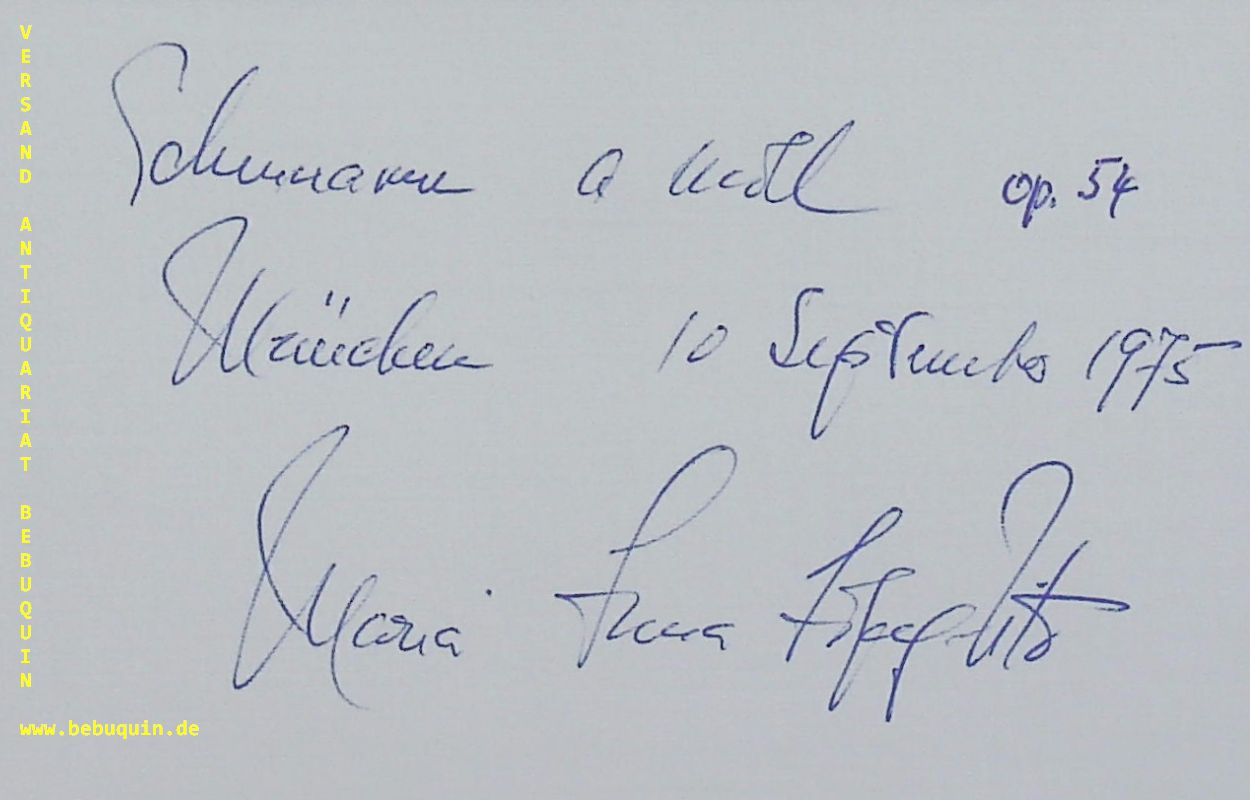 VERSAND ANTIQUARIAT BEBUQUIN
Schumann a moll op. 54
München 10 September 1975
Maria Luisa Lopez-Vito
www.bebuquin.de